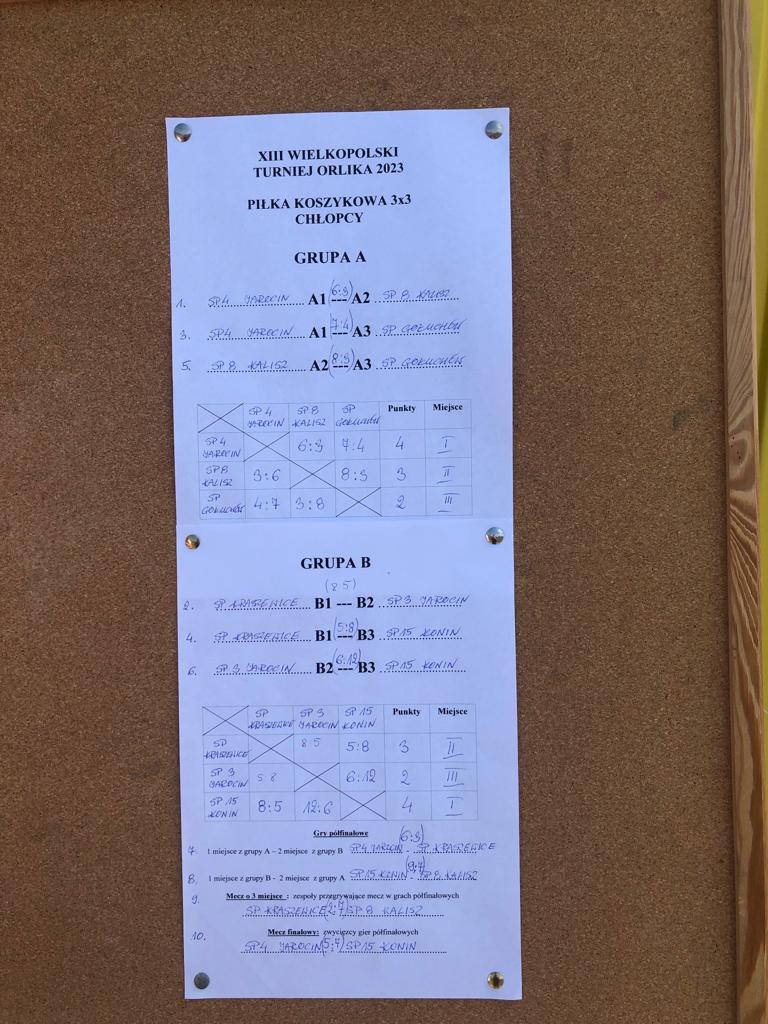 XIII WIELKOPOLSKI
TURNIEJ ORLIKA 2023
PIŁKA KOSZYKOWA 3x3
CHŁOPCY
GRUPA A
1. SP4 JAROCIN A1 (6:3) --- A2 SP 8 KALISZ
3. SP4 JAROCIN A1 (7:4) --- A3 SP GOŁUCHÓW
5. SP 8 KALISZ A2 (8:3) --- A3 SP GOŁUCHÓW
SP 4 JAROCIN SP 8 KALISZ SP GOŁUCHÓW Punkty Miejsce
SP 4 JAROCIN 6:3 7:4 4 I
SP 8 KALISZ 3:6 8:3 3 II
SP GOŁUCHÓW 4:7 3:8 2 III
GRUPA B
(8 5)
2. SP KRASZEWICE B1 --- B2 SP 3 JAROCIN
4. SP KRASZEWICE B1 (5:8) --- B3 SP 15 KONIN
6. SP 3 JAROCIN B2 (6:12) --- B3 SP 15 KONIN
SP KRASZEWICE SP 3 JAROCIN SP 15 KONIN Punkty Miejsce
SP KRASZEWICE 8 5 5:8 3 II
SP 3 JAROCIN 5 8 6:12 2 III
SP 15 KONIN 8:5 12:6 4 I
Gry półfinałowe
(6:3)
7. 1 miejsce z grupy A – 2 miejsce z grupy B SP4 JAROCIN - SP KRASZEWICE
(9:7)
8. 1 miejsce z grupy B - 2 miejsce z grupy A SP15 KONIN - SP 8 KALISZ
9. Mecz o 3 miejsce : zespoły przegrywające mecz w grach półfinałowych
SP KRASZEWICE SP 8 KALISZ
10. Mecz finałowy: zwycięzcy gier półfinałowych
SP4 JAROCIN (5:7) SP15 KONIN